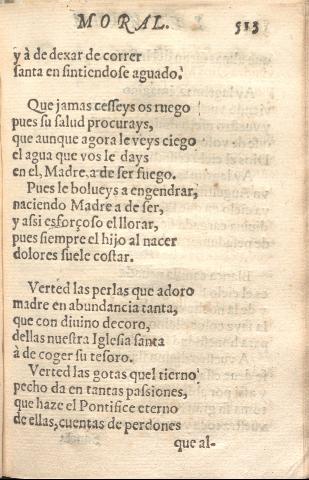 MORAL. 513
y à de dexar de correr
santa en sintiendose aguado.
Que jamas cesseys os ruego
pues su salud procurays,
que aunque agora le veys ciego
el agua que vos le days
en el, Madre, a de ser fuego.
Pues le bolueys a engendrar,
naciendo Madre a de ser,
y assi esforçoso el llorar,
pues siempre el hijo al nacer
dolores suele costar.
Verted las perlas que adoro
madre en abundancia tanta,
que con diuino decoro,
dellas nuestra Iglesia santa
à de coger su tesoro.
Verted las gotas quel tierno
pecho da en tantas passiones,
que haze el Pontifice eterno
de ellas, cuentas de perdones
que al-